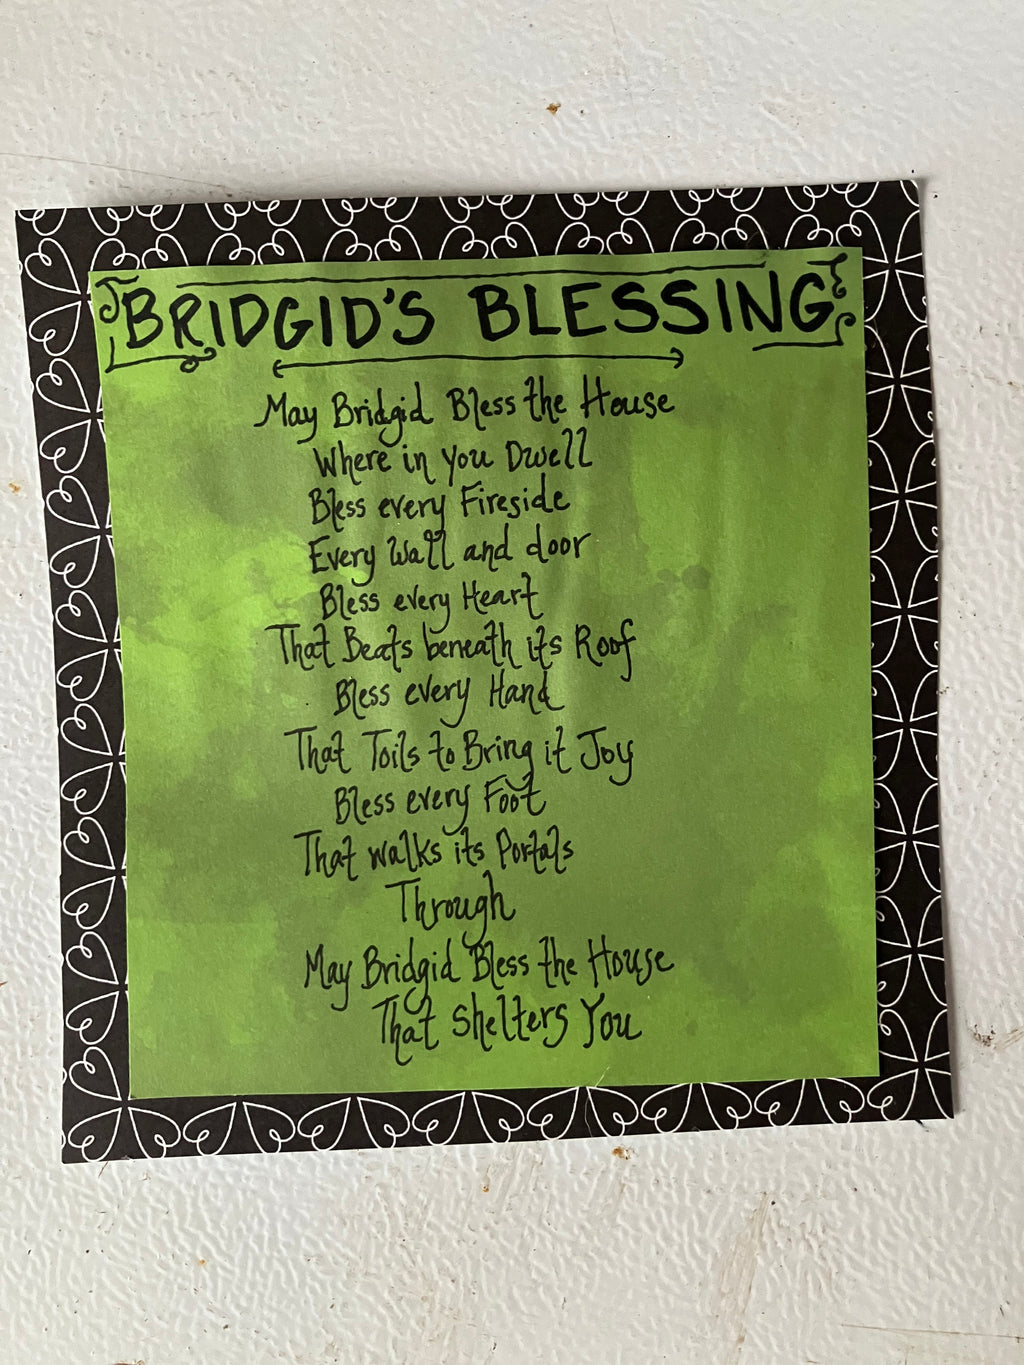 BRIDGID'S BLESSING
May Bridgid Bless the House
Where in you Dwell
Bless every Fireside
Every Wall and door
Bless every Heart
That Beats beneath its Roof
Bless every Hand
That Toils to Bring it Joy
Bless every Foot
That walks its Portals
Through
May Bridgid Bless the House
That Shelters You